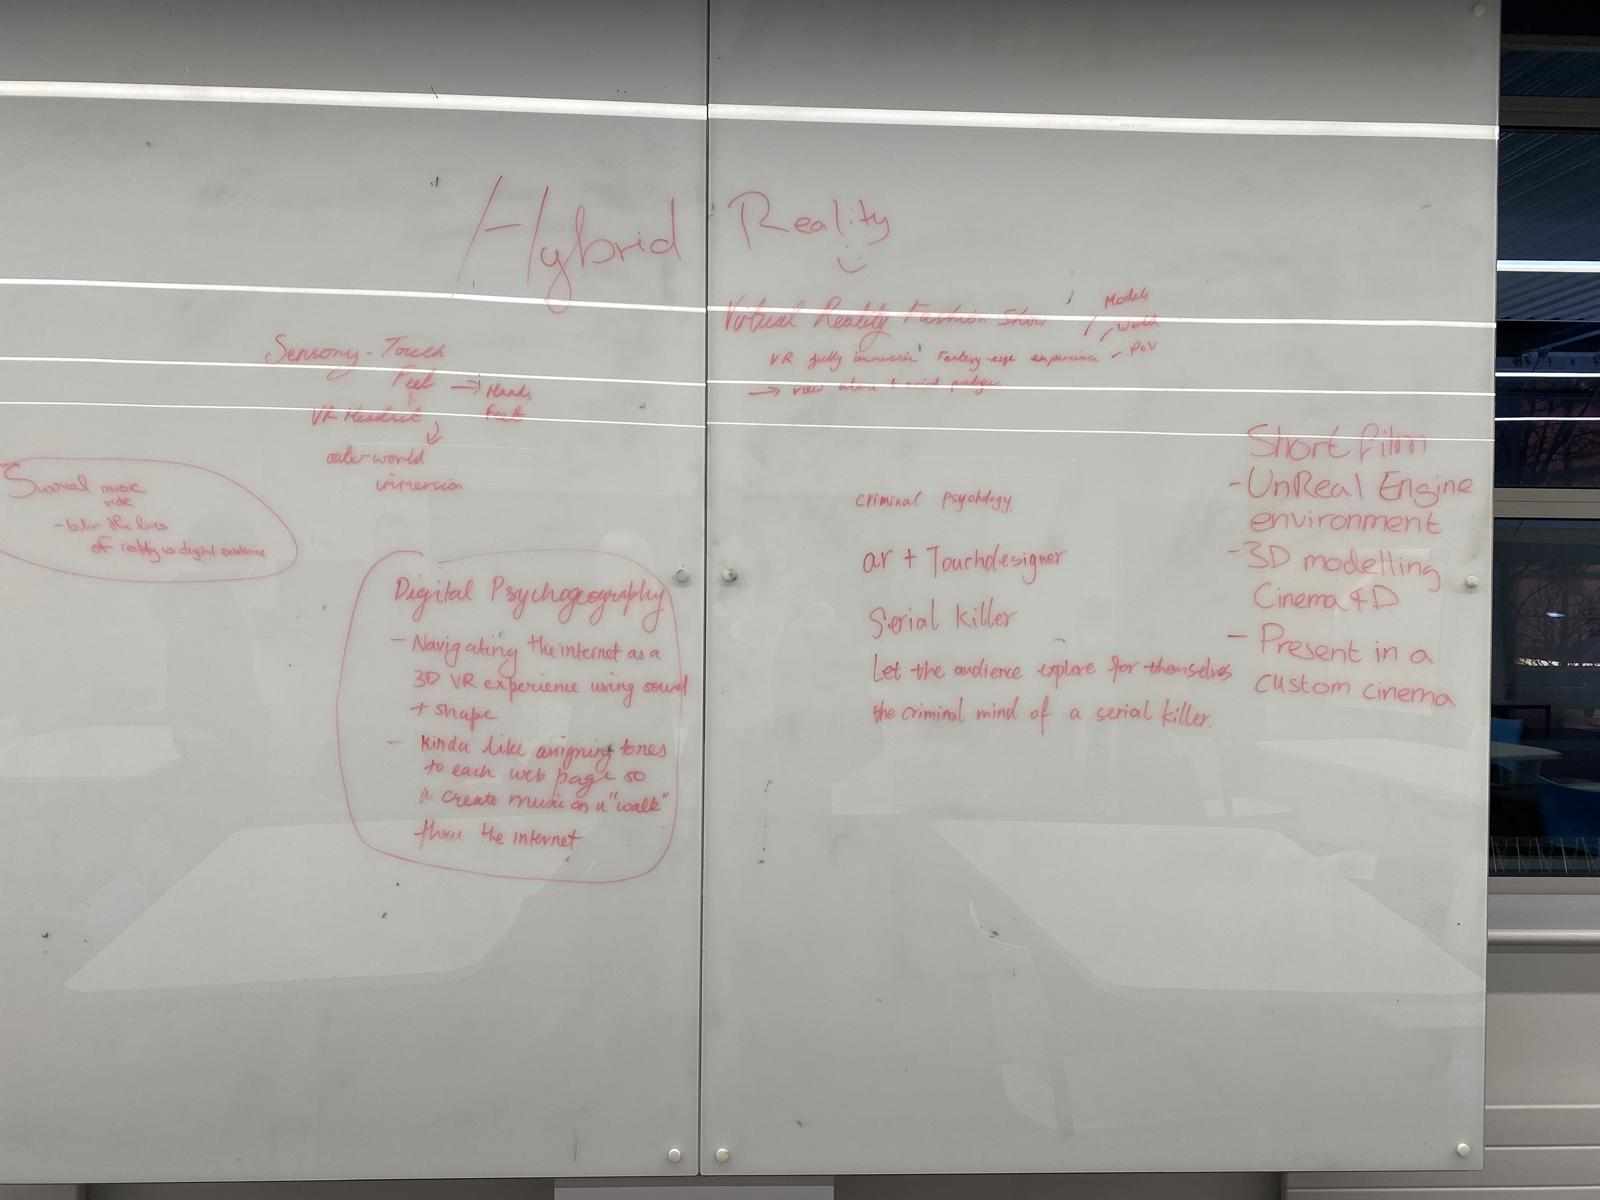 Hybrid Reality
Virtual Reality Fashion Show
Models
World
POV
VR fully immersin Fantasy-esge experience
→ view
Sensory - Touch
Feel → Hands
Feet
VR Headset
outerworld
immersion
Surreal music
ride
- blur the lines
of reality vs digital existence
Digital Psychogeography
- Navigating the internet as a
3D VR experience using sound
+ shape
- Kinda like assigning tones
to each web page so
create music on a "walk"
thru the internet
criminal psychology.
ar + Touchdesigner
Serial Killer
Let the audience explore for themselves
the criminal mind of a serial killer.
Short film
- UnReal Engine
environment
- 3D modelling
Cinema 4D
- Present in a
custom cinema